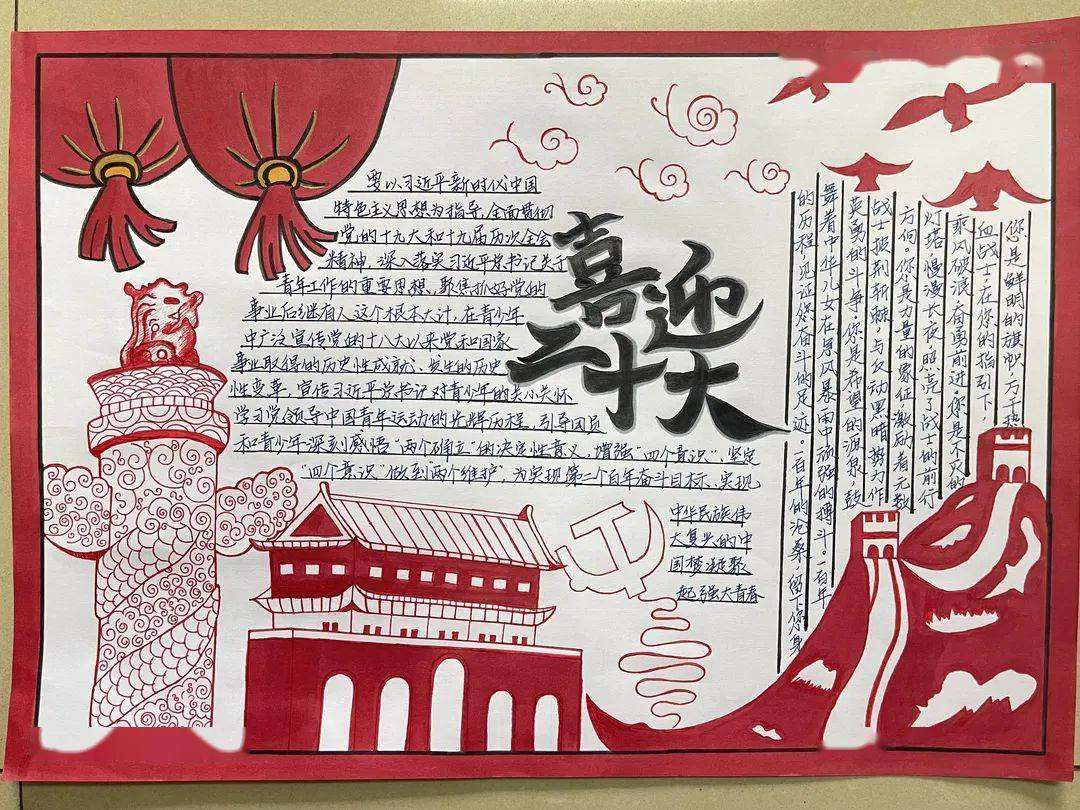 喜迎
二十大
要以习近平新时代中国
特色主义思想为指导,全面贯彻
党的十九大和十九届历次全会
精神,深入落实习近平总书记关于
青年工作的重要思想,聚焦抓好党的
事业后继有人这个根本大计,在青少年
中广泛宣传党的十八大以来党和国家
事业取得的历史性成就、发生的历史
性变革,宣传习近平总书记对青少年的关心关怀
学习党领导中国青年运动的光辉历程,引导团员
和青少年深刻感悟“两个确立”的决定性意义,增强“四个意识”、坚定
“四个意识”做到两个维护”,为实现第二个百年奋斗目标、实现
中华民族伟
大复兴的中
国梦凝聚
起强大青春
您是鲜明的旗帜,万千热
血战士在您的指引下,
乘风破浪,奋勇前进,您是不灭的
灯塔,慢慢长夜,照亮了战士的前行
方向。你是力量的象征,激励着无数
战士披荆斩棘,与反动黑暗势力作
英勇的斗争,你是希望的源泉,鼓
舞着中华儿女在狂风暴雨中顽强的搏斗。一百年
的历程,见证你奋斗的足迹。一百年的沧桑,留下你身